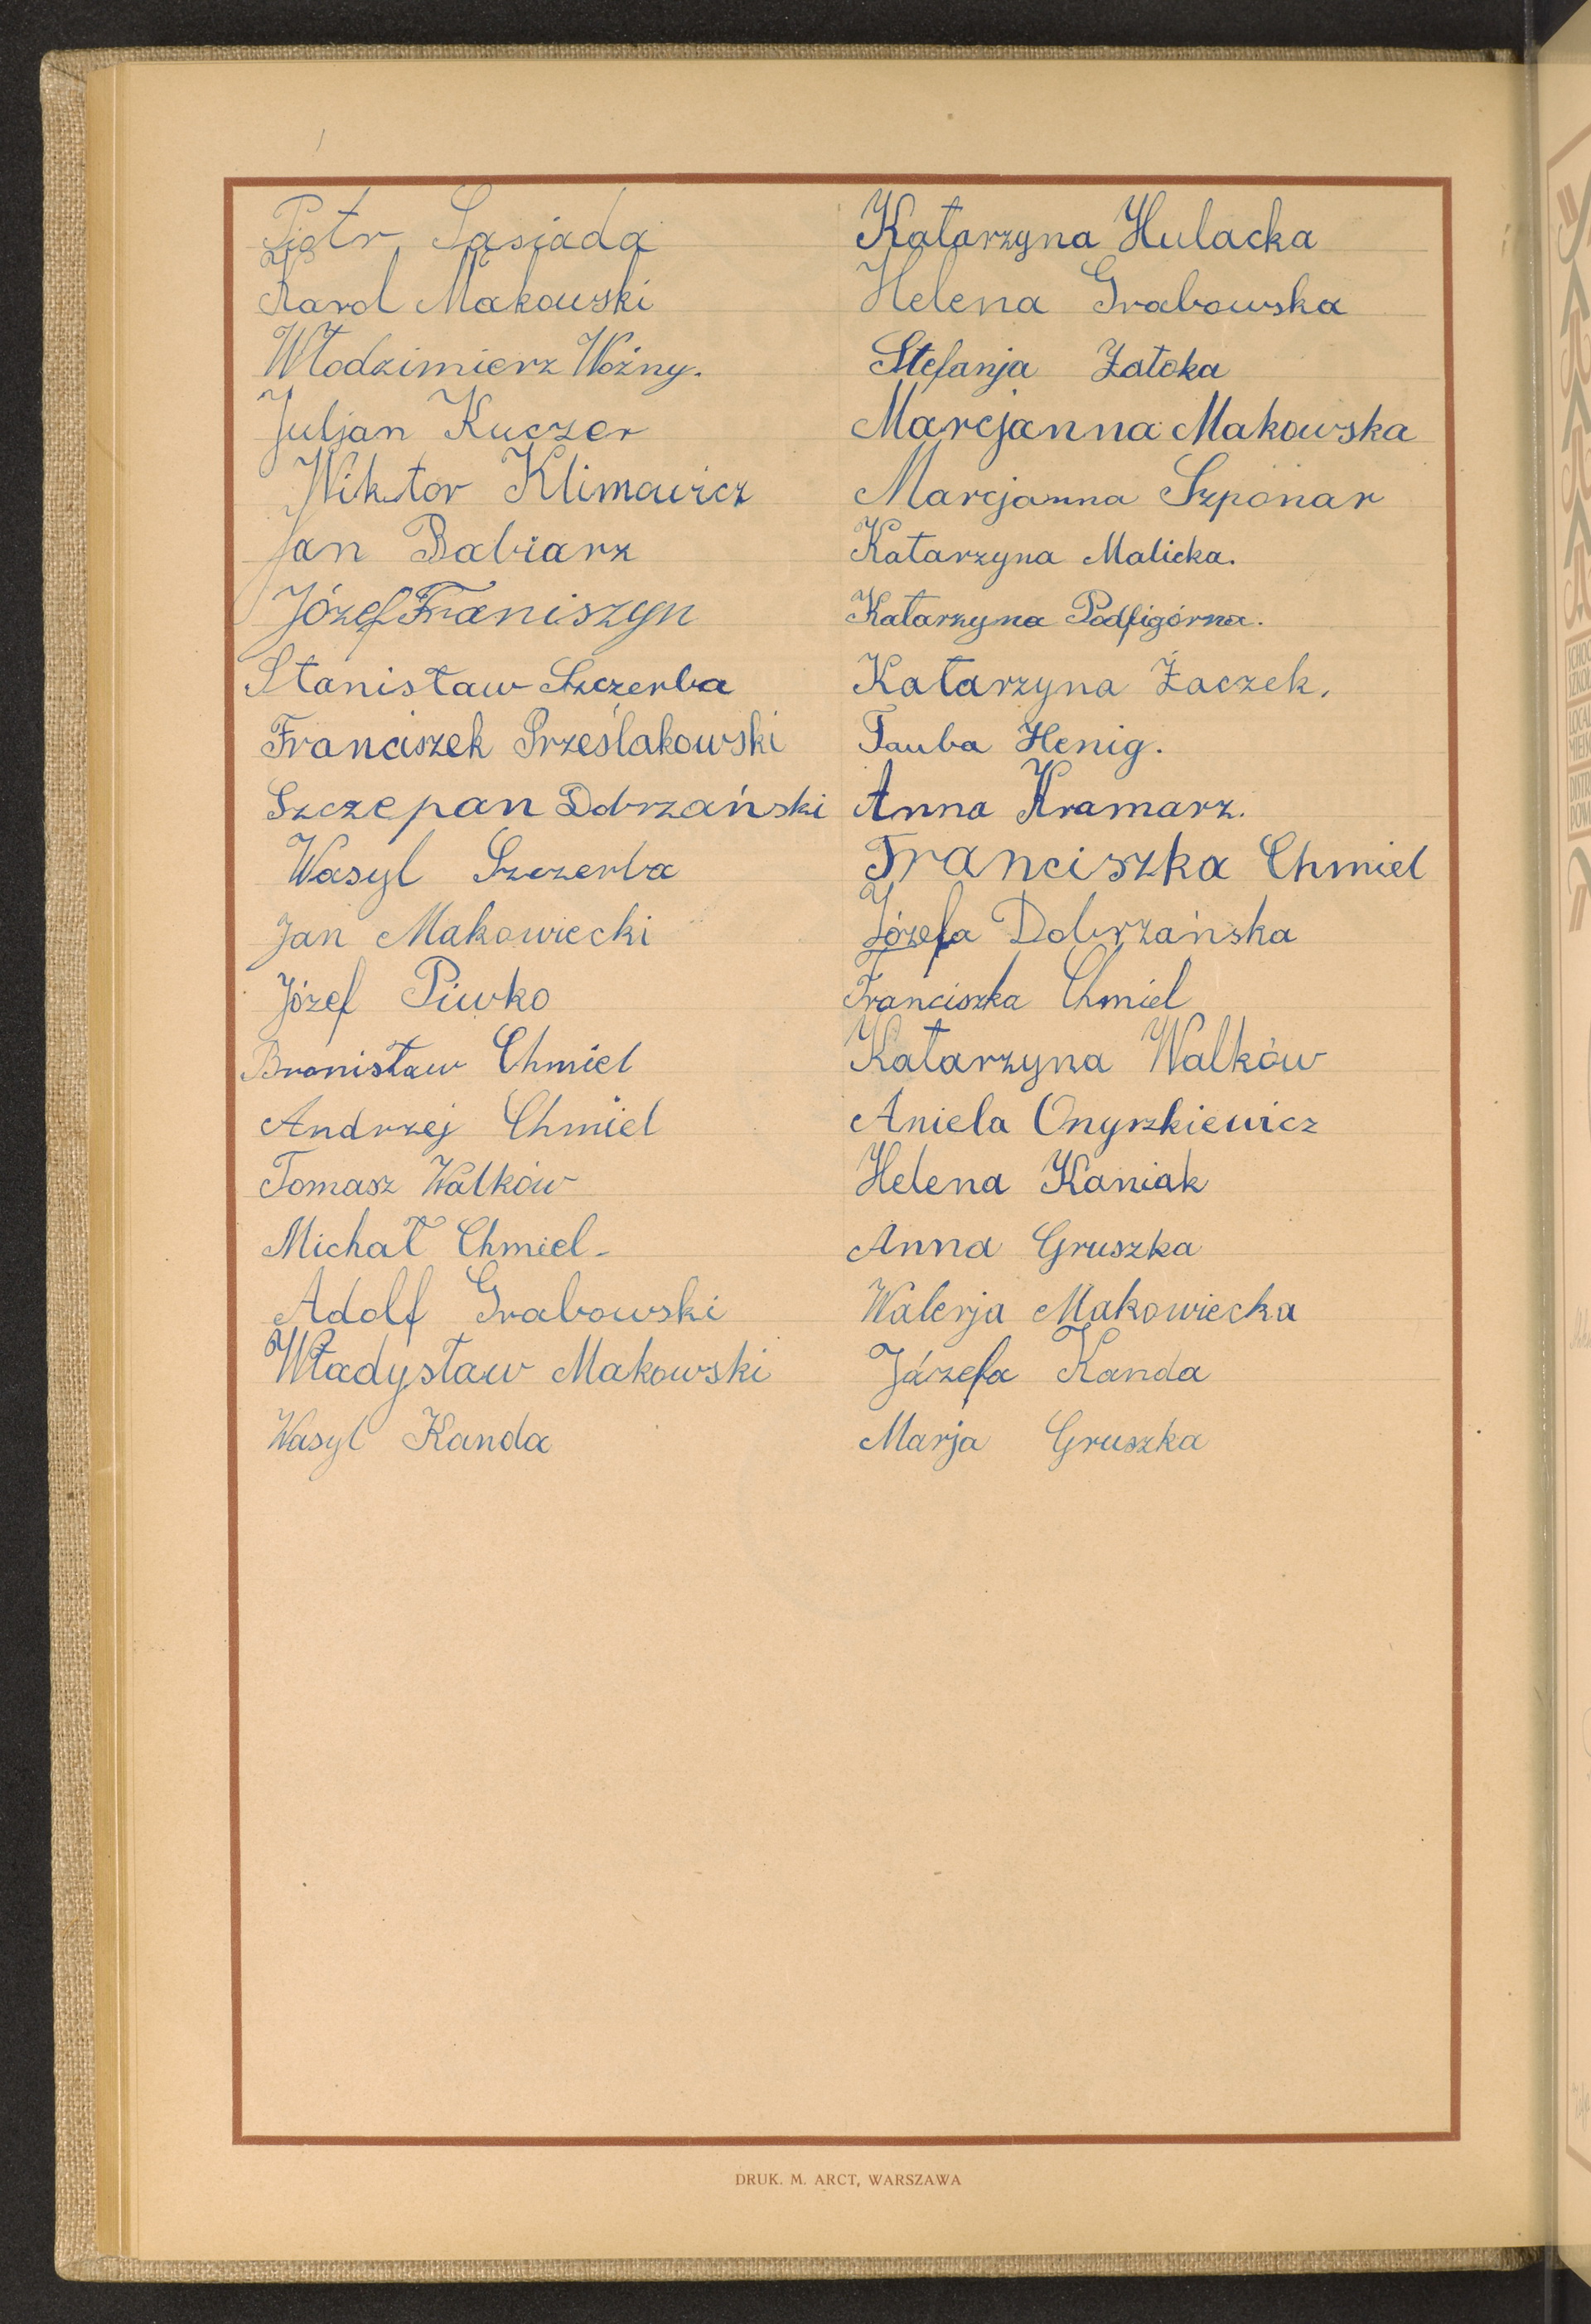 Piotr Sąsiada
Karol Makowski
Włodzimierz Woźny.
Juljan Kuczer
Wiktor Klimowicz
Jan Babiarz
Józef Franiszyn
Stanisław Szczerba
Franciszek Prześlakowski
Szczepan Dobrzański
Wasyl Szczerba
Jan Makowiecki
Józef Piwko
Bronisław Chmiel
Andrzej Chmiel
Tomasz Walków
Michał Chmiel
Adolf Grabowski
Władysław Makowski
Wasyl Kanda
Katarzyna Hulacka
Helena Grabowska
Stefanja Zatoka
Marcjanna Makowska
Marcjanna Szponar
Katarzyna Malicka.
Katarzyna Podfigórna.
Katarzyna Żaczek.
Tauba Henig.
Anna Kramarz.
Franciszka Chmiel
Józefa Dobrzańska
Franciszka Chmiel
Katarzyna Walków
Aniela Onyszkiewicz
Helena Kaniak
Anna Gruszka
Walerja Makowiecka
Józefa Kanda
Marja Gruszka
DRUK. M. ARCT, WARSZAWA